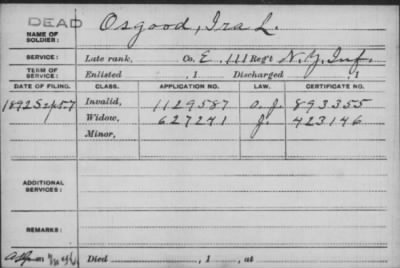 DEAD
NAME OF SOLDIER: Osgood, Ira L.
SERVICE: Late rank, Co. E, 111 Reg't N.Y. Inf.
TERM OF SERVICE: Enlisted , 1 Discharged , 1
DATE OF FILING. CLASS. APPLICATION NO. LAW. CERTIFICATE NO.
1892 Sept. 7 Invalid, 1129587 893355
Widow, 627241 423146
Minor,
ADDITIONAL SERVICES:
REMARKS:
Died , 1 , at